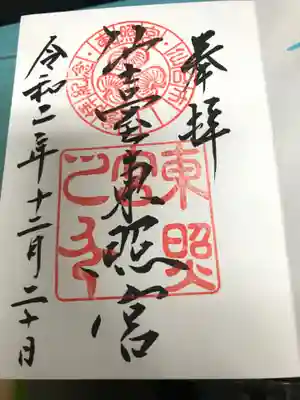 奉拝
仙臺東照宮
令和二年十二月二十日
東照宮之印